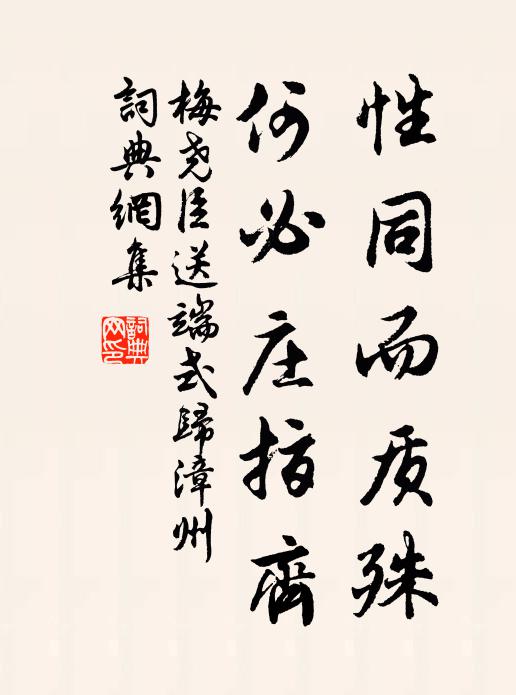 性同而质殊
何必庄指齊
梅尧臣送端式歸漳州
詞典網集
詞典网印